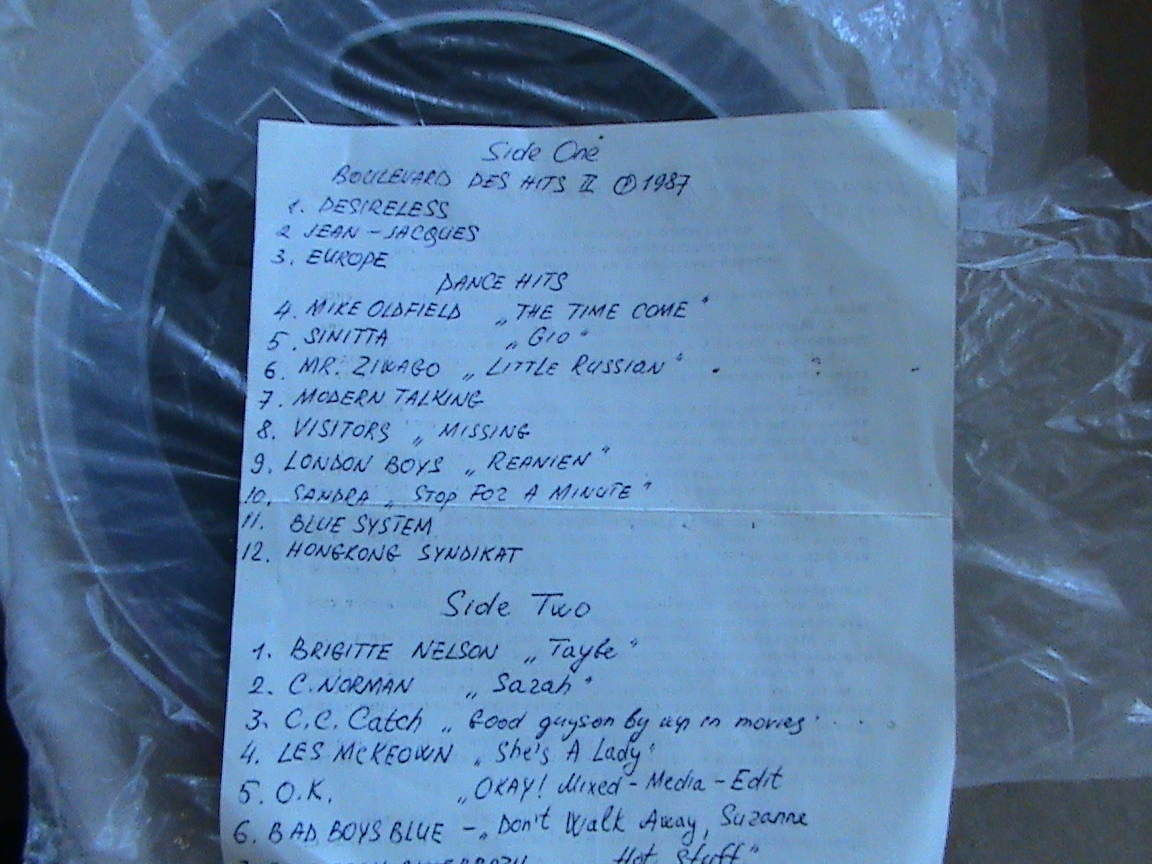 Side One
BOULEVARD DES HITS II Ⓟ1987
1. DESIRELESS
2 JEAN-JACQUES
3. EUROPE
DANCE HITS
4. MIKE OLDFIELD „THE TIME COME"
5. SINITTA „GIO"
6. MR. ZIWAGO „LITTLE RUSSIAN"
7. MODERN TALKING
8. VISITORS „MISSING
9. LONDON BOYS „REANIEN"
10. SANDRA „STOP FOR A MINUTE"
11. BLUE SYSTEM
12. HONGKONG SYNDIKAT
Side Two
1. BRIGITTE NELSON „Taybe"
2. C.NORMAN „Sarah"
3. C.C. Catch „Good guyson by up in movies
4. LES MCKEOWN „She's A Lady"
5. O.K. „OKAY! Mixed-Media-Edit
6. BAD BOYS BLUE -„Don't Walk Away, Suzanne
Hot Stuff"